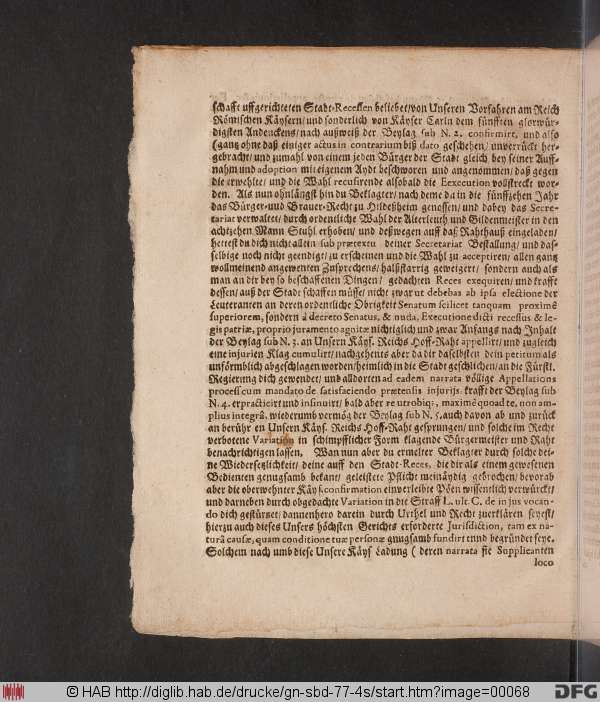 schafft uffgerichteten Stadt-Recessen beliebet/ von Unseren Vorfahren am Reich
Römischen Käysern/ und sonderlich von Käyser Carln dem fünfften glorwür-
digsten Andenckens/ nach außweiß der Beylag sub N. 2. confirmirt, und also
(gantz ohne daß einiger actus in contrarium biß dato geschehen/ unverrückt her-
gebracht/ und zumahl von einem jeden Bürger der Stadt gleich bey seiner Auff-
nahm und adoption mit eigenem Aydt beschworen und angenommen/ daß gegen
die erwehlte/ und die Wahl recusirende alsobald die Eexecution vollstreckt wor-
den. Als nun ohnlängst hin du Beklagter/ nach deme da in die fünffzehen Jahr
das Bürger-und Brauer-Recht zu Hildeßheim genossen/ und dabey das Secre-
tariat verwaltet/ durch ordentliche Wahl der Alterleuth und Gildenmeister in den
achtzehen Mann Stuhl erhoben/ und deßwegen auff daß Rahthauß eingeladen/
hettest du dich nicht allein sub prætextu deiner Secretariat Bestallung/ und das-
selbige noch nicht geendigt/ zu erscheinen und die Wahl zu acceptiren/ allen gantz
wollmeinend angewenten Zusprechens/ halßstarrig geweigert/ sondern auch als
man an dir bey so beschaffenen Dingen/ gedachten Reces exequiren/ und krafft
dessen/ auß der Stadt schaffen müsse/ nicht zwar ut debebas ab ipsa electione der
Leuteranten an deren ordentliche Obrigkeit Senatum scilicet tanquam proximè
superiorem, sondern à decreto Senatus, & nuda, Executione dicti recessus & le-
gis patriæ, proprio juramento agnitæ nichtiglich und zwar Anfangs nach Inhalt
der Beylag sub N. 3. an Unsern Käys. Reichs Hoff-Raht appellirt/ und zugleich
eine injurien Klag cumulirt/ nachgehents aber da dir daselbsten dein petitum als
unförmblich abgeschlagen worden/ heimlich in die Stadt geschlichen/ an die Fürstl.
Regierung dich gewendet/ und alldorten ad eadem narrata völlige Appellations
processcum mandato de satisfaciendo prætensis injurijs krafft der Beylag sub
N. 4. erpracticirt und insinuirt/ bald aber re utrobiq;, maximè quoad te, non am-
plius integrâ, wiederumb vermög der Beylag sub N. 5. auch davon ab und zurück
an berühr en Unsern Käys. Reichs Hoff-Raht gesprungen/ und solche im Recht
verbotene Variation in schimpfflicher Form klagende Bürgermeister und Raht
benachrichtigen lassen. Wan nun aber du ermelter Beklagter durch solche dei-
ne Wiedersetzlichkeit/ deine auff den Stadt-Reces, die dir als einem gewesenen
Bedienten genugsamb bekant/ geleistete Pflicht meinäydig gebrochen/ bevorab
aber die oberwehnter Käys. confirmation einverleibte Pöen wissentlich verwürckt/
und darneben durch obgedachte Variation in die Straff L. ult C. de in jus vocan-
do dich gestürtzet/ dannenhero darein durch Urthel und Recht zuerklären seyest/
hierzu auch dieses Unsers höchsten Gerichts erforderte Jurisdiction, tam ex na-
turâ causæ, quam conditione tuæ personæ gnugsamb fundirt unnd begründet seye.
Solchem nach umb diese Unsere Käys Ladung ( deren narrata sie Supplicanten
loco
© HAB http://diglib.hab.de/drucke/gn-sbd-77-4s/start.htm?image=00068
DFG